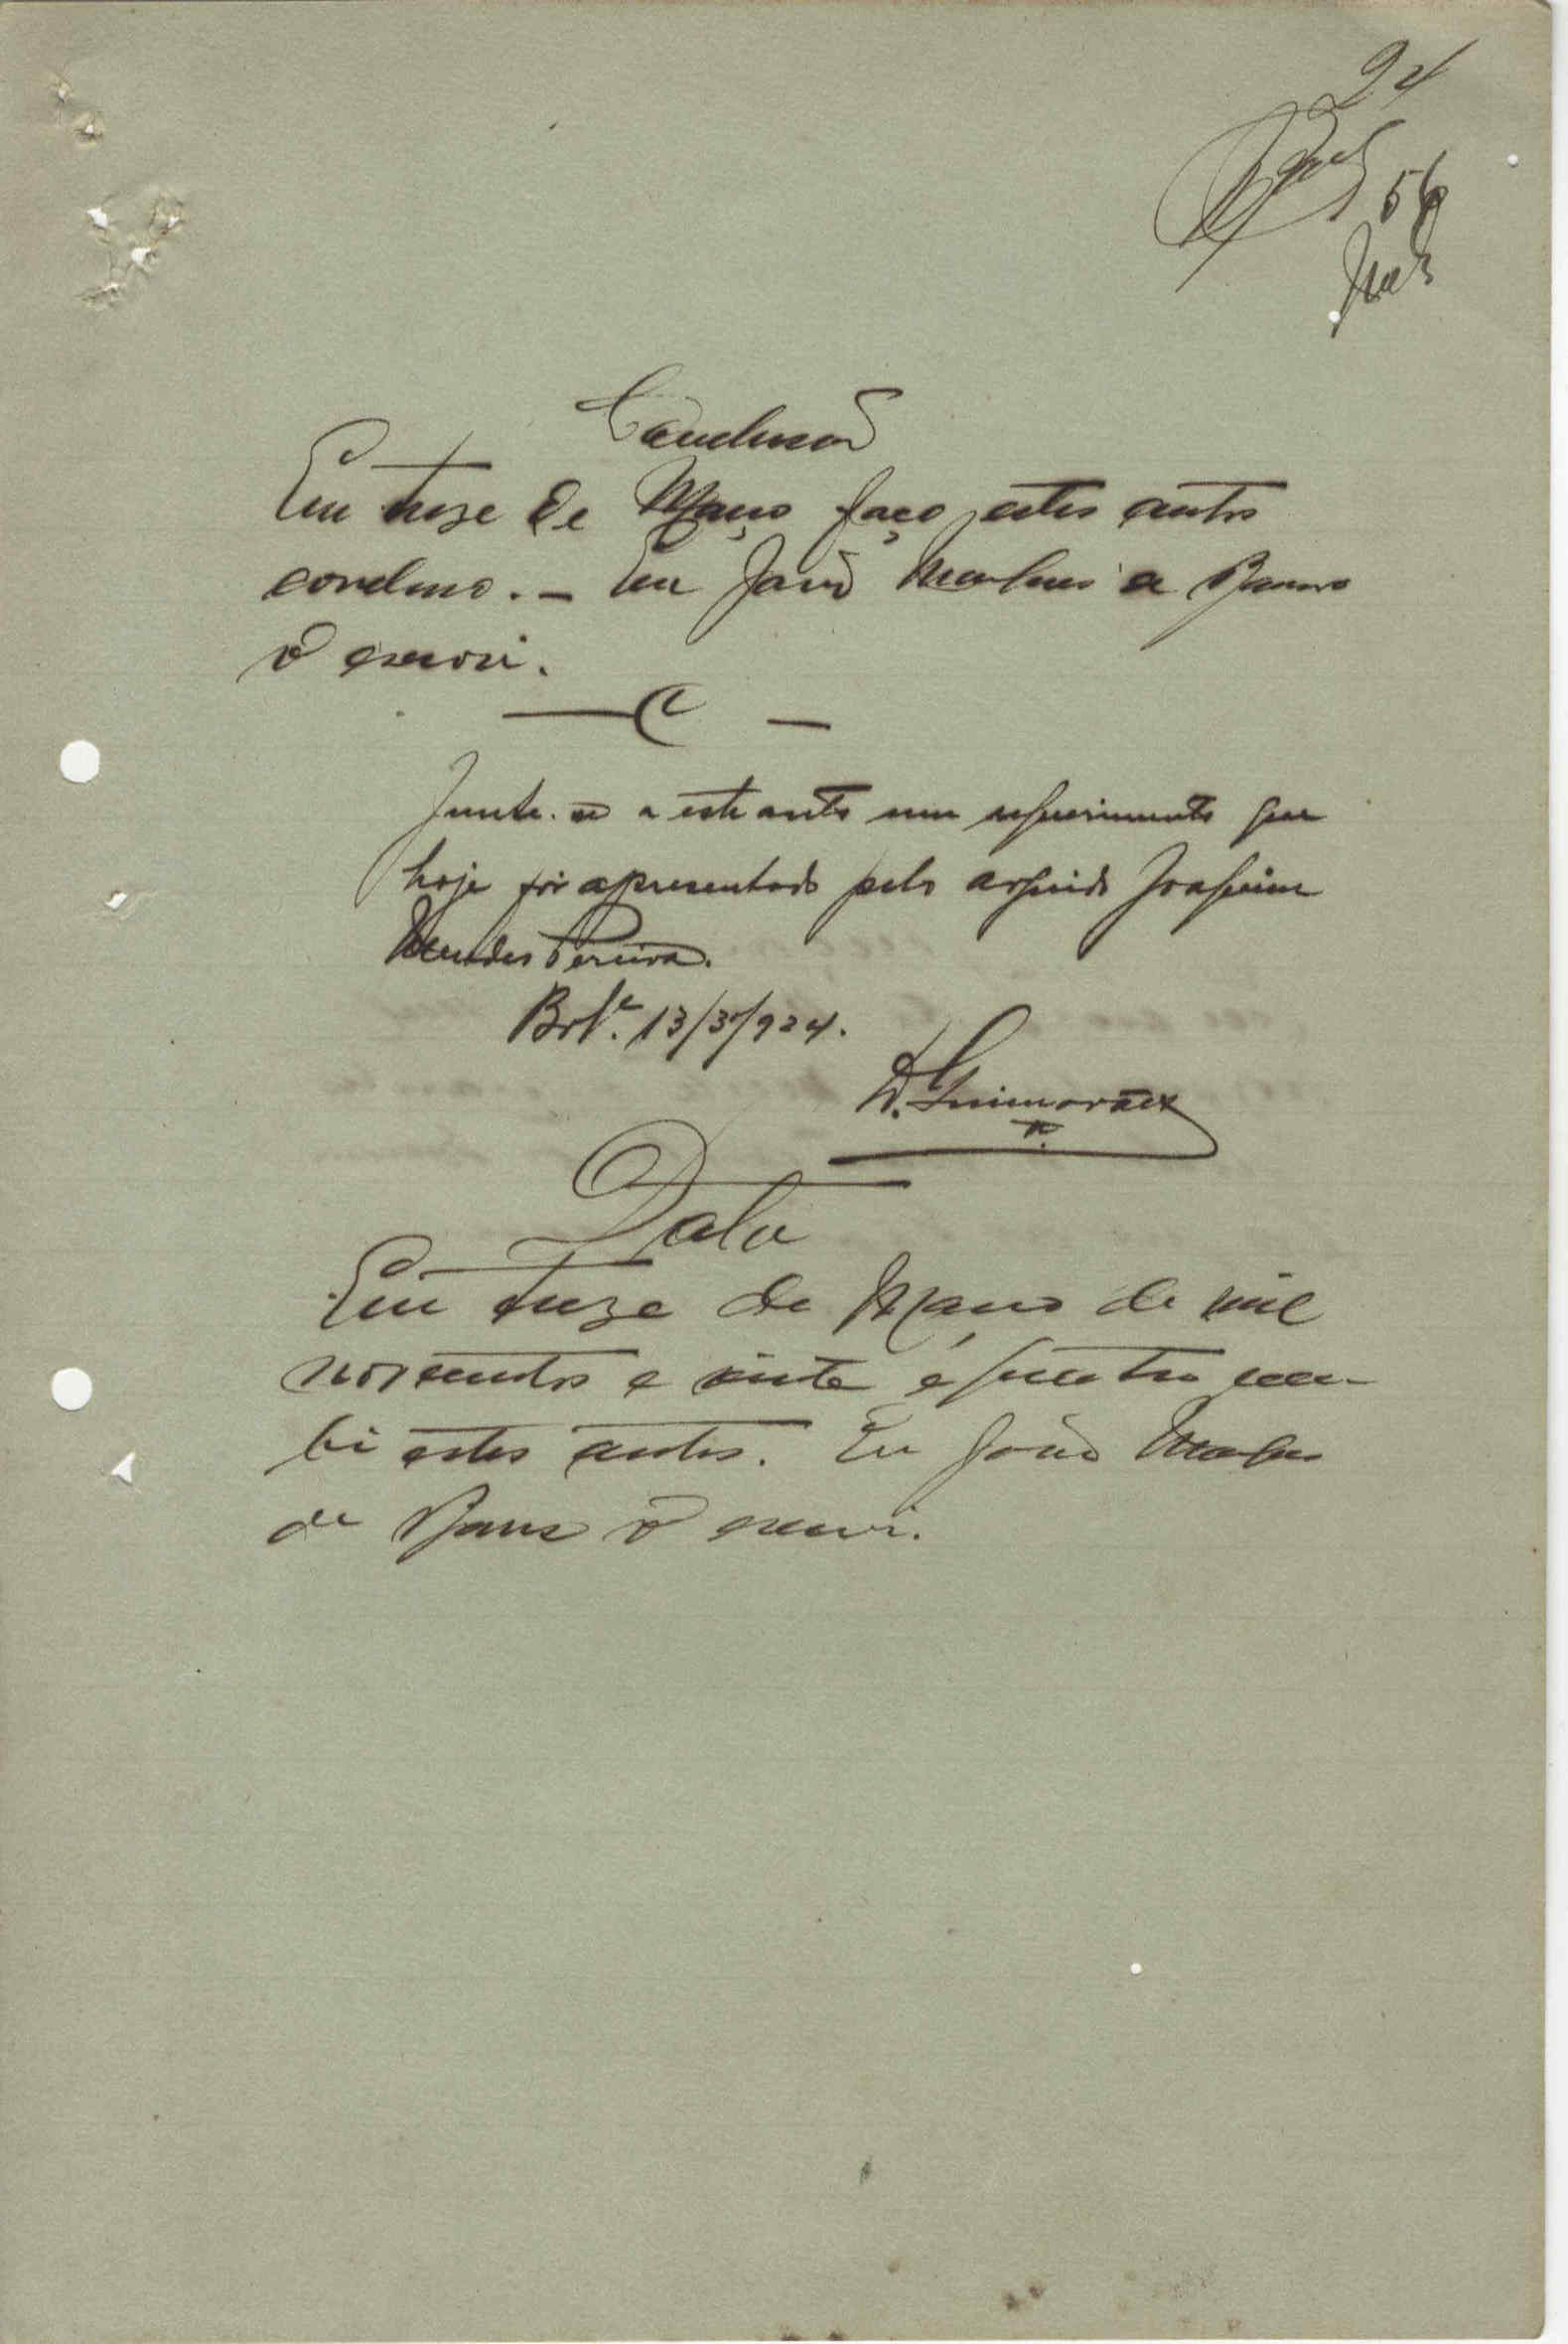 24
56
Conclusão
Em treze de Março faço estes autos
conclusos. — Eu João de Barros
o escrevi.
Junte-se a este auto um requerimento que
hoje foi apresentado pelo arguido Joaquim
Mendes Pereira.
13/3/924.
D. Guimarães
Data
Em treze de Março de mil
novecentos e vinte e quatro rece-
bi estes autos. Eu João
de Barros o escrevi.